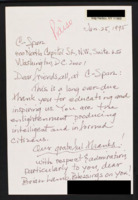 Jan. 25, 1995
C-Span
400 North Capitol St., N.W., Suite 650
Washington, DC 20001
Dear friends, all, at C-Span:
This is a long over due
thank you for educating and
inspiring us. You are the
enlightenment producing
intelligent and informed
citizens.
Our grateful thanks!
with respect & admiration,
particularly to you, dear
Brian Lamb, Blessings on you!